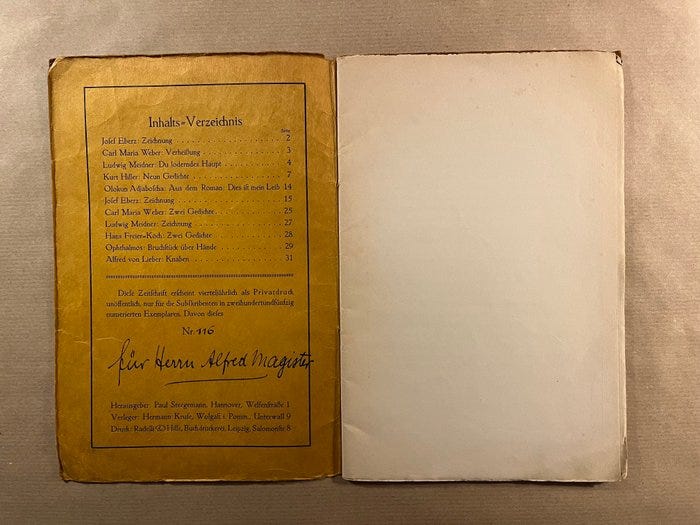 Inhalts-Verzeichnis
Seite
Josef Eberz: Zeichnung . . . . . . . . . . . . . . . . . . . . 2
Carl Maria Weber: Verheißung . . . . . . . . . . . . . . . 3
Ludwig Meidner: Du loderndes Haupt . . . . . . . . . . . 4
Kurt Hiller: Neun Gedichte . . . . . . . . . . . . . . . . . 7
Olokun Adjabofcha: Aus dem Roman: Dies ist mein Leib 14
Josef Eberz: Zeichnung . . . . . . . . . . . . . . . . . . . . 15
Carl Maria Weber: Zwei Gedichte . . . . . . . . . . . . . 25
Ludwig Meidner: Zeichnung . . . . . . . . . . . . . . . . . 27
Hans Freier-Koch: Zwei Gedichte . . . . . . . . . . . . . 28
Ophthalmos: Bruchstück über Hände . . . . . . . . . . . 29
Alfred von Lieber: Knaben . . . . . . . . . . . . . . . . . . 31
Diese Zeitschrift erscheint vierteljährlich als Privatdruck
unöffentlich, nur für die Subskribenten in zweihundertundfünfzig
numerierten Exemplaren. Davon dieses
Nr. 116
für Herrn Alfred Magister
Herausgeber: Paul Steegemann, Hannover, Welfenstraße 1
Verleger: Hermann Kruse, Wolgast i. Pomm., Unterwall 9
Druck: Radelli & Hille, Buchdruckerei, Leipzig, Salomonstr. 8